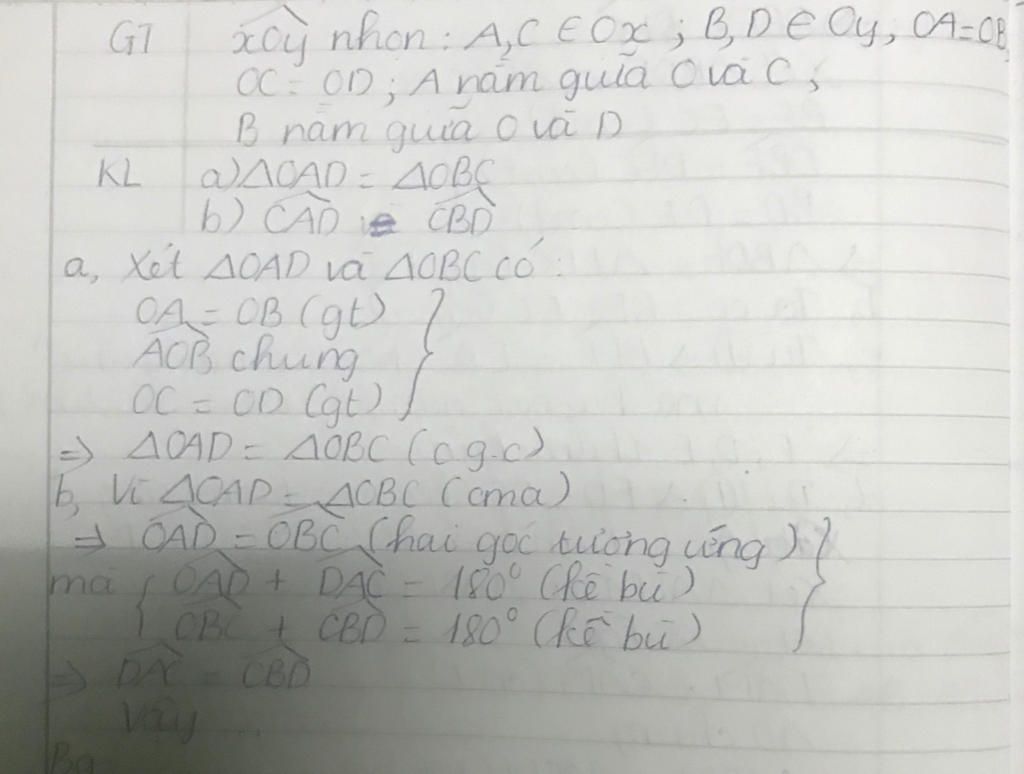 GT xOy nhọn : A, C ∈ Ox ; B, D ∈ Oy, OA = OB,
OC = OD ; A nằm giữa O và C ;
B nằm giữa O và D
KL a) ΔOAD = ΔOBC
b) CAD = CBD
a, Xét ΔOAD và ΔOBC có :
OA = OB (gt)
AOB chung
OC = OD (gt)
=> ΔOAD = ΔOBC (c.g.c)
b, Vì ΔOAD = ΔOBC (cma)
=> OAD = OBC (hai góc tương ứng)
mà { OAD + DAC = 180° (kề bù)
OBC + CBD = 180° (kề bù)
=> DAC = CBD
Vậy ...